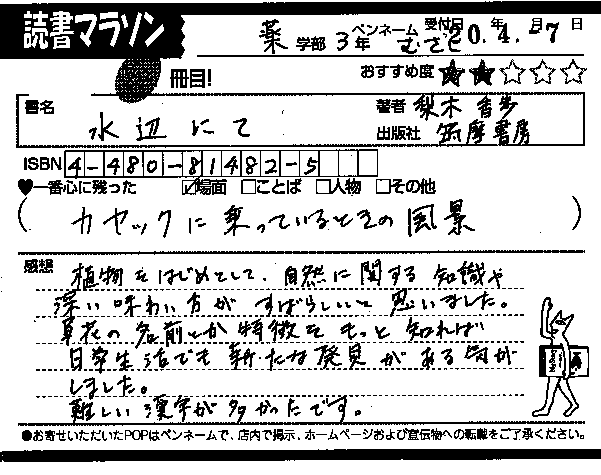 読書マラソン
薬 学部 3年 ペンネーム むさと 受付日 20年 4月 -7日
冊目!
おすすめ度 ★★☆☆☆
書名 水辺にて
著者 梨木香歩
出版社 筑摩書房
ISBN 4-480-81482-5
♥一番心に残った ☑場面 □ことば □人物 □その他
(カヤックに乗っているときの風景)
感想 植物をはじめとして、自然に関する知識や
深い味わい方がすばらしいと思いました。
草花の名前とか特徴をもっと知れば
日常生活でも新たな発見がある気が
しました。
難しい漢字が多かったです。
●お寄せいただいたPOPはペンネームで、店内で掲示、ホームページおよび宣伝物への転載をご了承ください。